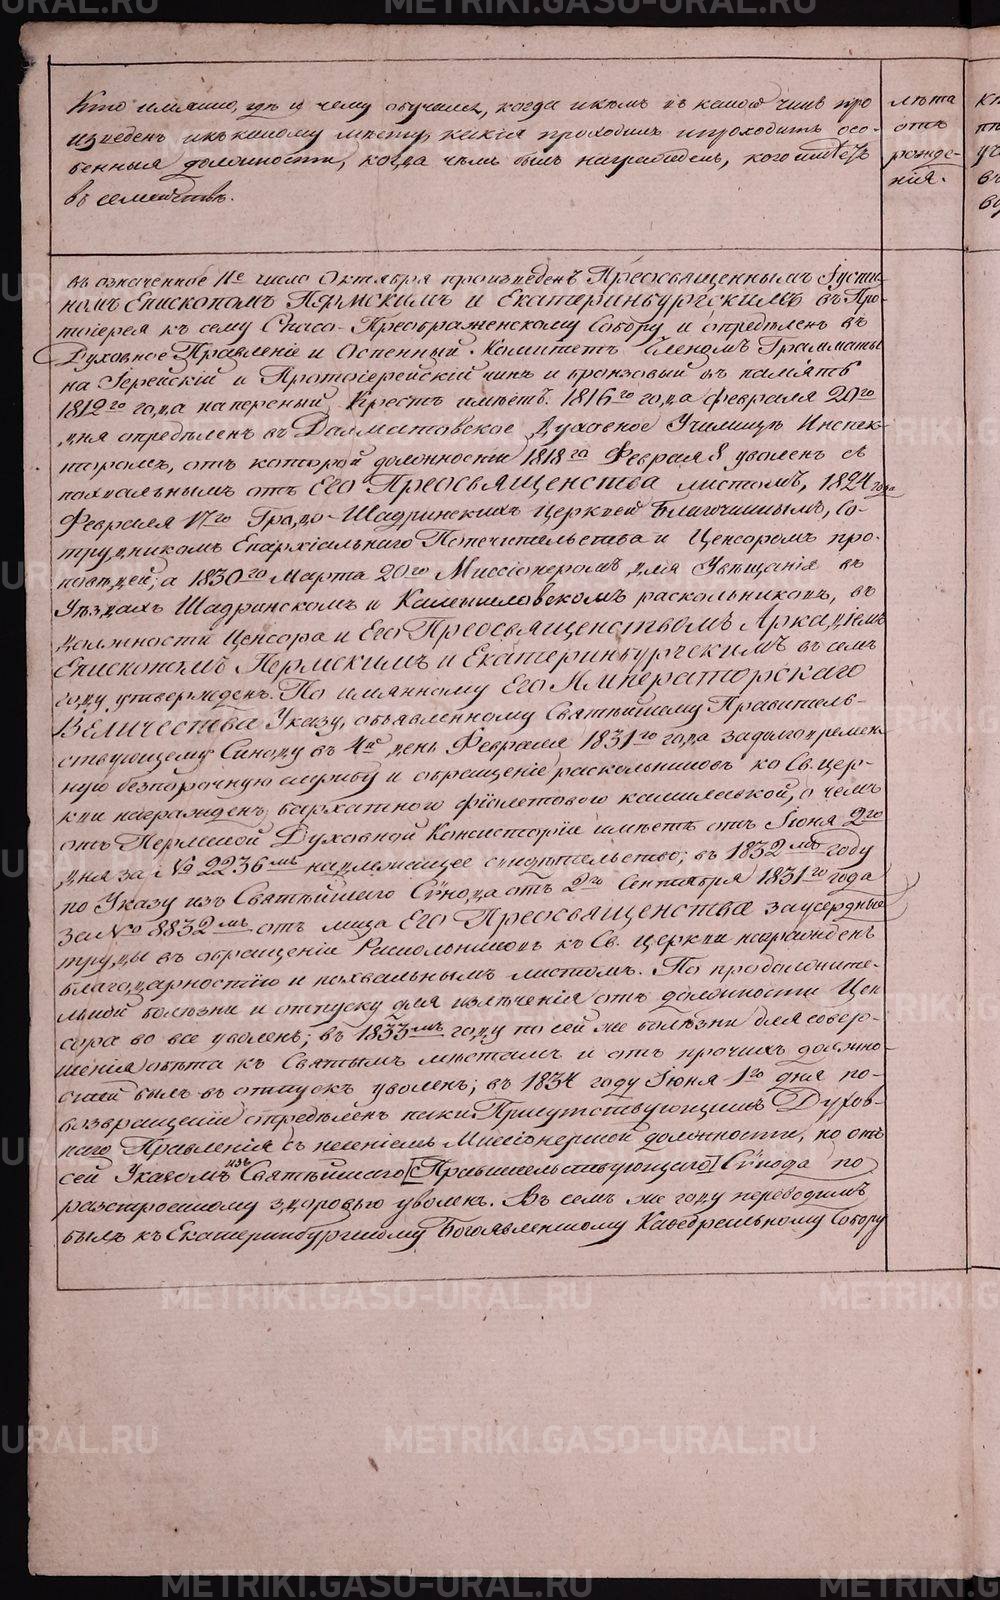 METRIKI.GASO-URAL.RU
METRIKI.G
Кто имянно, гдѣ и чему обучался, когда и кѣмъ въ какой чинъ про
изведенъ и къ какому мѣсту, какія проходилъ и проходитъ осо-
бенныя должности, когда чѣмъ былъ награжденъ, кого имѣетъ
въ семействѣ.
лѣта
отъ
рожде-
нія.
въ означенное 11е число Октября произведенъ Преосвященнымъ Іусти-
номъ Епископомъ Пермскимъ и Екатеринбургскимъ въ Про-
тоіерея къ сему Спасо-Преображенскому Собору и опредѣленъ въ
Духовное Правленіе и Оспенный Комитетъ Членомъ Грамматы
на Іерейскій и Протоіерейскій чинъ и бронзовый въ память
1812го года наперсный Крестъ имѣетъ. 1816го года Февраля 20го
дня опредѣленъ въ Далматовское Духовное Училище Инспек-
торомъ, отъ которой должности 1818го Февраля 8 уволенъ съ
похвальнымъ отъ Его Преосвященства листомъ, 1824 года
Февраля 17го Градо-Шадринскихъ церквей Благочиннымъ, Со-
трудникомъ Епархіальнаго Попечительства и Ценсоромъ про-
повѣдей, а 1830го Марта 20го Миссіонеромъ для Увѣщанія въ
Уѣздахъ Шадринскомъ и Камышловскомъ раскольниковъ, въ
должности Ценсора и Его Преосвященствомъ Аркадіемъ
Епископомъ Пермскимъ и Екатеринбургскимъ въ семъ
году утвержденъ. По имянному Его Императорскаго
Величества Указу, объявленному Святѣйшему Правитель-
ствующему Синоду въ 4й день Февраля 1831го года за долговремен-
ную безпорочную службу и обращеніе раскольниковъ ко Св. цер-
кви награжденъ бархатного фіолетового камилавкой, о чемъ
отъ Пермской Духовной Консисторіи имѣетъ отъ Іюня 2го
дня за № 2236мъ надлежащее свидѣтельство; въ 1832мъ году
по Указу изъ Святѣйшаго Сѵнода отъ 2го Сентября 1831го года
за № 8832мъ отъ лица Его Преосвященства за усердные
труды въ обращеніи Раскольниковъ къ Св. церкви награжденъ
благодарностію и похвальнымъ листомъ. По продолжите-
льной болѣзни и отпуску для излѣченія отъ должности Цен
сора во все уволенъ; въ 1833мъ году по сей же болѣзни для совер-
шенія обѣта къ Святымъ мѣстамъ и отъ прочихъ должно-
стей былъ въ отпускъ уволенъ; въ 1834 году Іюня 1го дня по
возвращеніи опредѣленъ паки Присутствующимъ Духов-
наго Правленія съ несеніемъ Миссіонерской должности, но отъ
сей Указомъ изъ Святѣйшаго [Правительствующаго] Сѵнода по
разстроенному здоровью уволенъ. Въ семъ же году переводимъ
былъ къ Екатеринбургскому Богоявленскому Кафедральному Собору
METRIKI.GASO-URAL.RU
METRIKI.G
URAL.RU
METRIKI.GASO-URAL.RU
METRIKI.GASO-URAL.RU
METRIKI.G